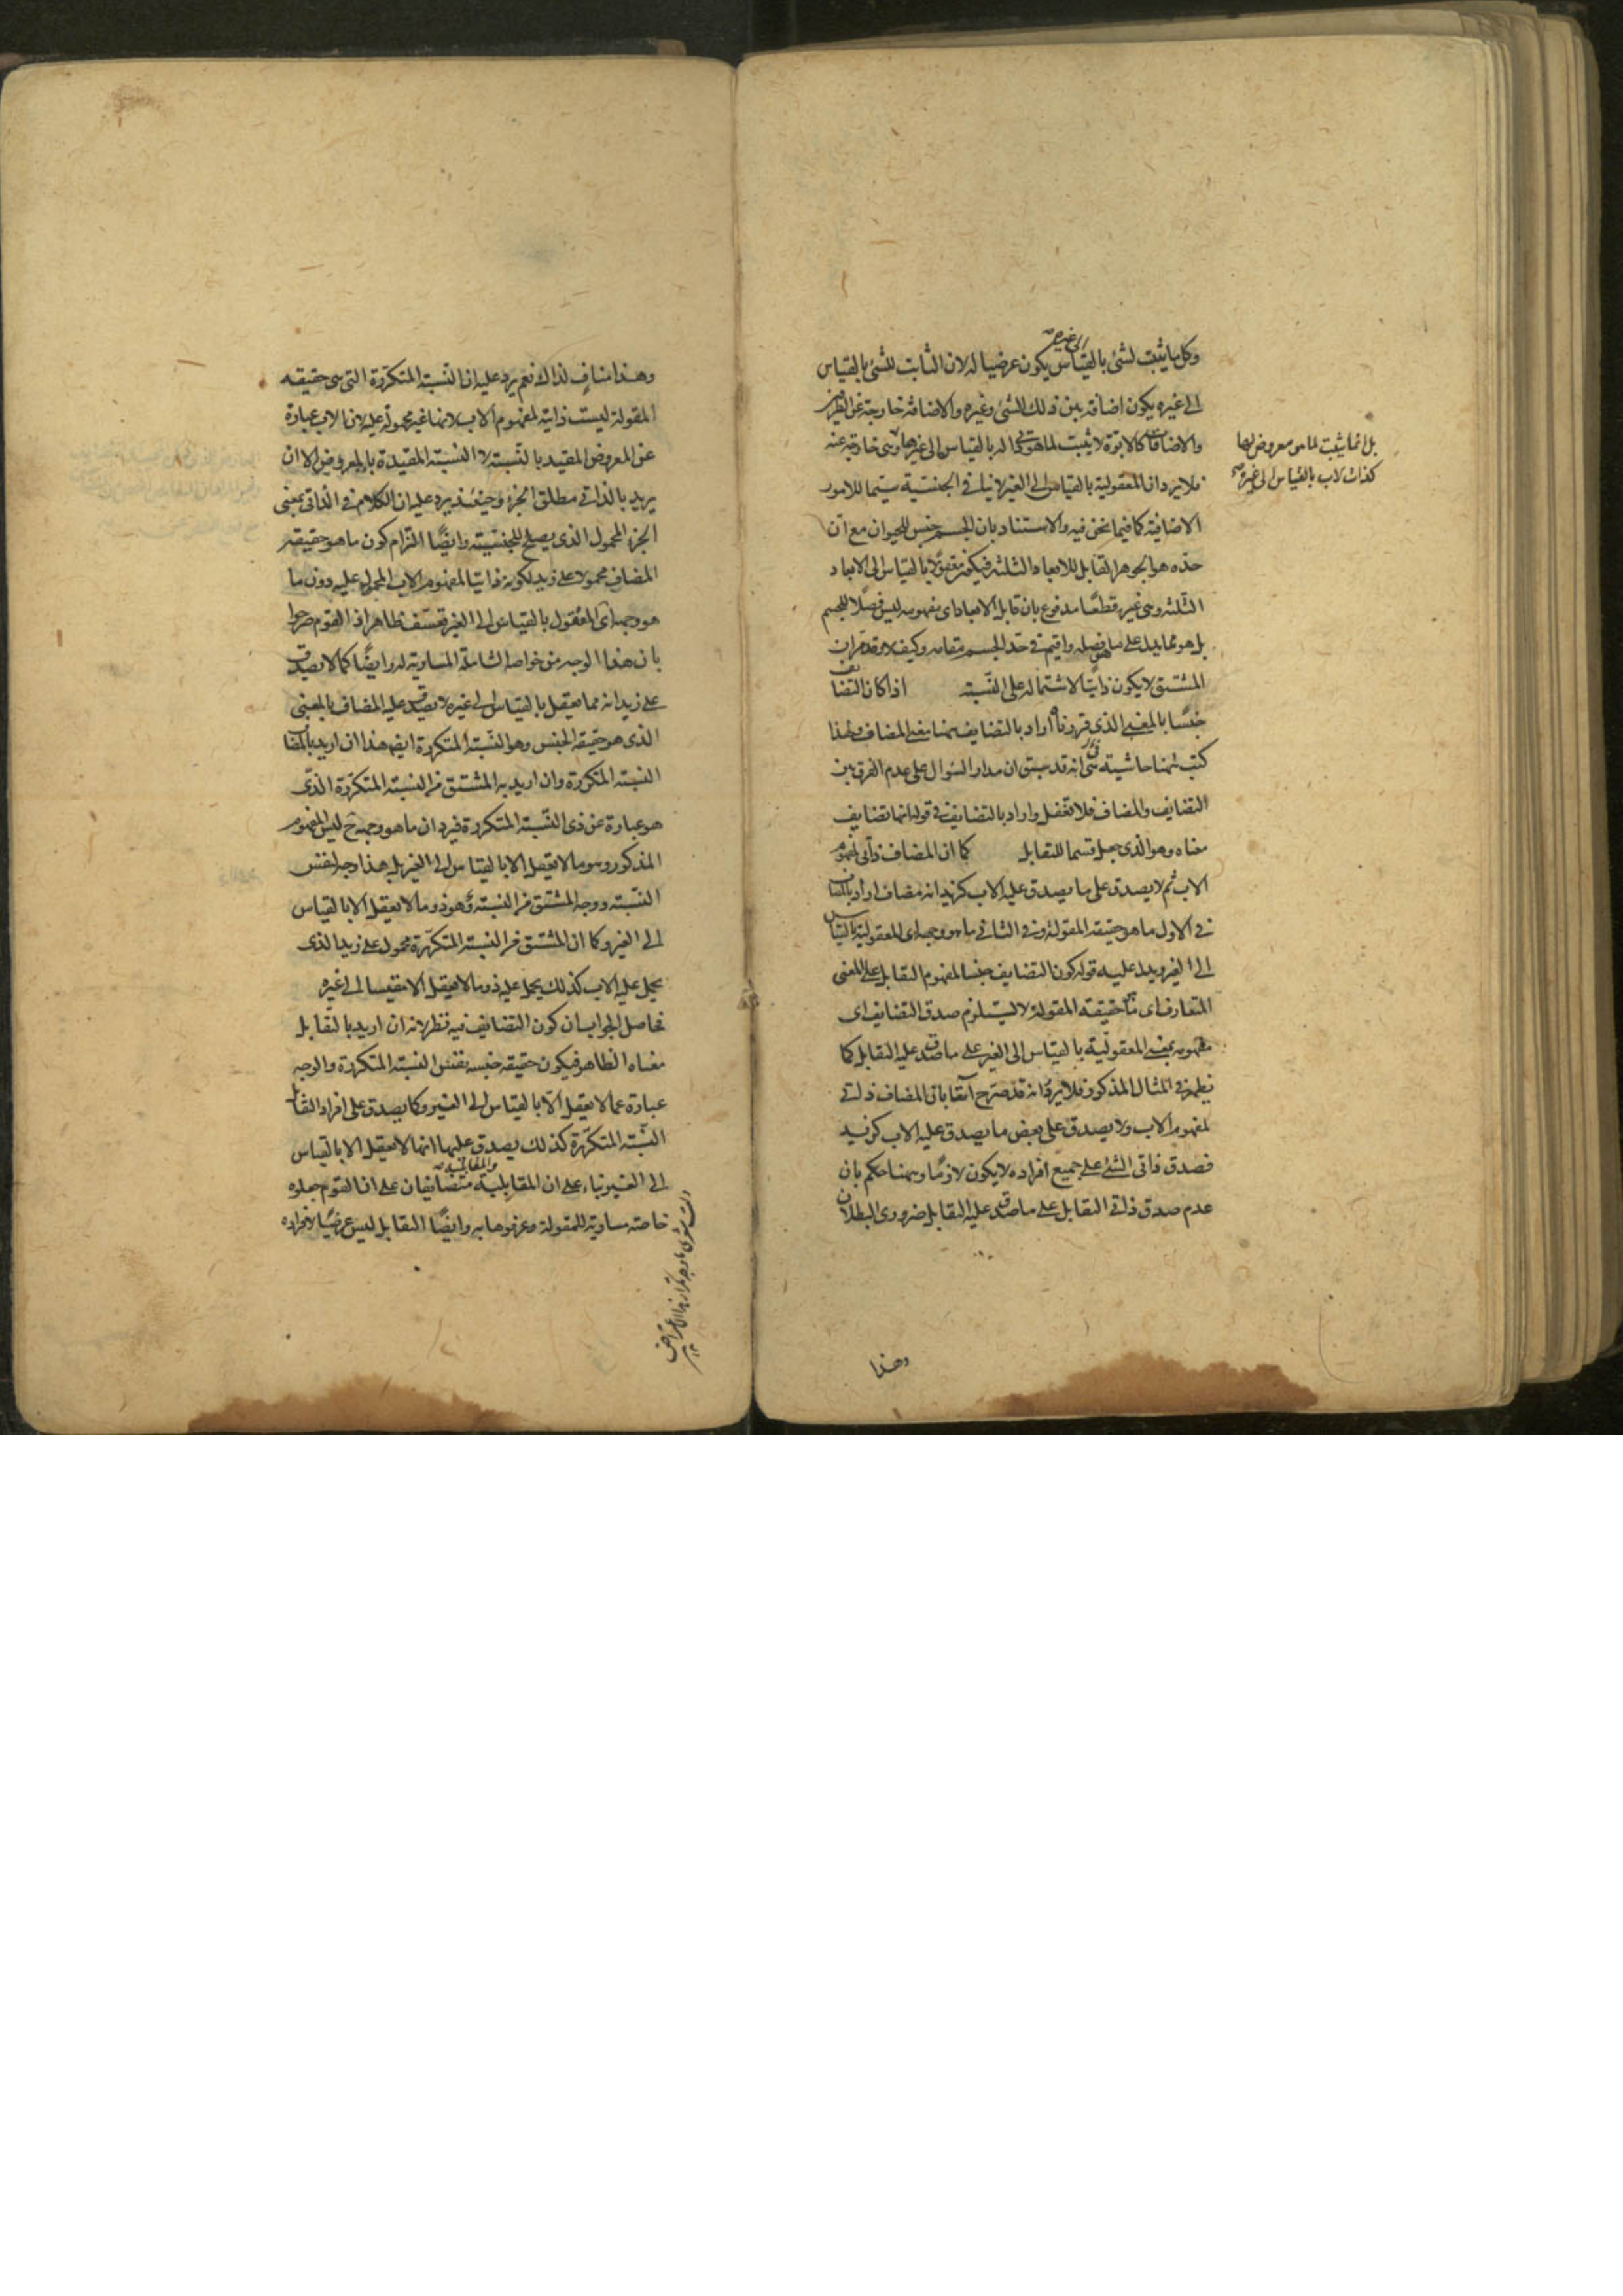 وكل ما يثبت لشئ بالقياس الى غيره يكون عرضيا له لان الثابت للشئ بالقياس
الى غيره يكون اضافة بين ذلك الشئ وغيره والاضافة خارجة عن الطرفين
والاضافات كالابوة لا تثبت لما هو له بالقياس الى غيرها وهى خارجة عنه
بل انما يثبت لما هى معروض لها
كذات الاب بالقياس الى غيره صح
فلا يرد ان المعقولية بالقياس الى الغير لا ينافى الجنسية سيما للامور
الاضافية كما فيما نحن فيه والاستناد بان الجسم جنس للحيوان مع ان
حده هو الجوهر القابل للابعاد الثلثة فيكون معقولا بالقياس الى الابعاد
الثلثة وهى غيره قطعًا مدفوع بان قابل الابعاد اى مفهومه ليس فصلًا للجسم
بل هو مما يدل على ما هو فصله واقيم فى حد الجسم مقامه وكيف لا وقد مر ان
المشتق لا يكون ذاتيًا لاشتماله على النسبة اذا كان التضايف
جنسًا بالمعنى الذى قررناه اراد بالتضايف هنا معنى المضاف ولهذا
كتب هنا حاشية هى انه قد سبق ان مدار السؤال على عدم الفرق بين
التضايف والمضاف فلا تغفل واراد بالتضايف فى قوله انما تضايف
معناه وهو الذى جعل قسما للتقابل كما ان المضاف ذاتى لمفهوم
الاب ثم لا يصدق على ما يصدق عليه الاب كزيد انه مضاف اراد بالمضاف
فى الاول ما هو حقيقة المقولة وفى الثانى ما هو وجهه اى المعقولية بالقياس
الى الغير ويدل عليه قوله كون التضايف جنسا لمفهوم التقابل على المعنى
المتعارف اى ما حقيقة المقولة لا يستلزم صدق التضايف اى
مفهومه بمعنى المعقولية بالقياس الى الغير على ما صدق عليه التقابل كما
يظهر فى المثال المذكور فلا يرد انه قد صرح آنفا بان المضاف ذاتى
لمفهوم الاب ولا يصدق على بعض ما يصدق عليه الاب كزيد
فصدق ذاتى الشئ على جميع افراده لا يكون لازمًا وههنا حكم بان
عدم صدق ذاتى التقابل على ما صدق عليه التقابل ضرورى البطلان
وهذا
وهذا مناف لذاك نعم يرد عليه ان النسبة المتكررة التى هى حقيقة
المقولة ليست ذاتية لمفهوم الاب لانها غير محمولة عليه لان الاب عبارة
عن المعروض المقيد بالنسبة لا النسبة المقيدة بالمعروض الا ان
يريد بالذاتى مطلق الجزء وحينئذ يرد عليه ان الكلام فى الذاتى بمعنى
الجزء المحمول الذى يصلح للجنسية وايضًا التزام كون ما هو حقيقة
المضاف محمولا على زيد لكونه ذاتيا لمفهوم الاب المحمول عليه دون ما
هو وجهه اى المعقول بالقياس الى الغير تعسف ظاهر اذ القوم صرحوا
بان هذا الوجه من خواصه الشاملة المساوية له وايضًا كما لا يصدق
على زيد انه مما يعقل بالقياس الى غيره لا يصدق عليه المضاف بالمعنى
الذى هو حقيقة الجنس وهو النسبة المتكررة ايضا هذا ان اريد بالمضاف
النسبة المتكررة وان اريد به المشتق من النسبة المتكررة الذى
هو عبارة عن ذى النسبة المتكررة فيرد ان ما هو وجهه ح ليس المفهوم
المذكور وهو ما لا يعقل الا بالقياس الى الغير بل هذا وجه لنفس
النسبة ووجه المشتق من النسبة هو ذو ما لا يعقل الا بالقياس
الى الغير وكما ان المشتق من النسبة المتكررة محمول على زيد الذى
يحمل عليه الاب كذلك يحمل عليه ذو ما لا يعقل الا مقيسا الى غيره
فحاصل الجواب ان كون التضايف فيه نظر لانه ان اريد بالتقابل
معناه الظاهر فيكون حقيقة جنسه نفس النسبة المتكررة والوجه
عبارة عما لا يعقل الا بالقياس الى الغير وكما يصدق على افراد التقابل
النسبة المتكررة كذلك يصدق عليها انها لا يعقل الا بالقياس
الى الغير بناء على ان المقابلية والمقابلية متضايفان على ان القوم جعلوه
خاصة مساوية للمقولة وعرفوها به وايضًا التقابل ليس عرضيًا لافراده